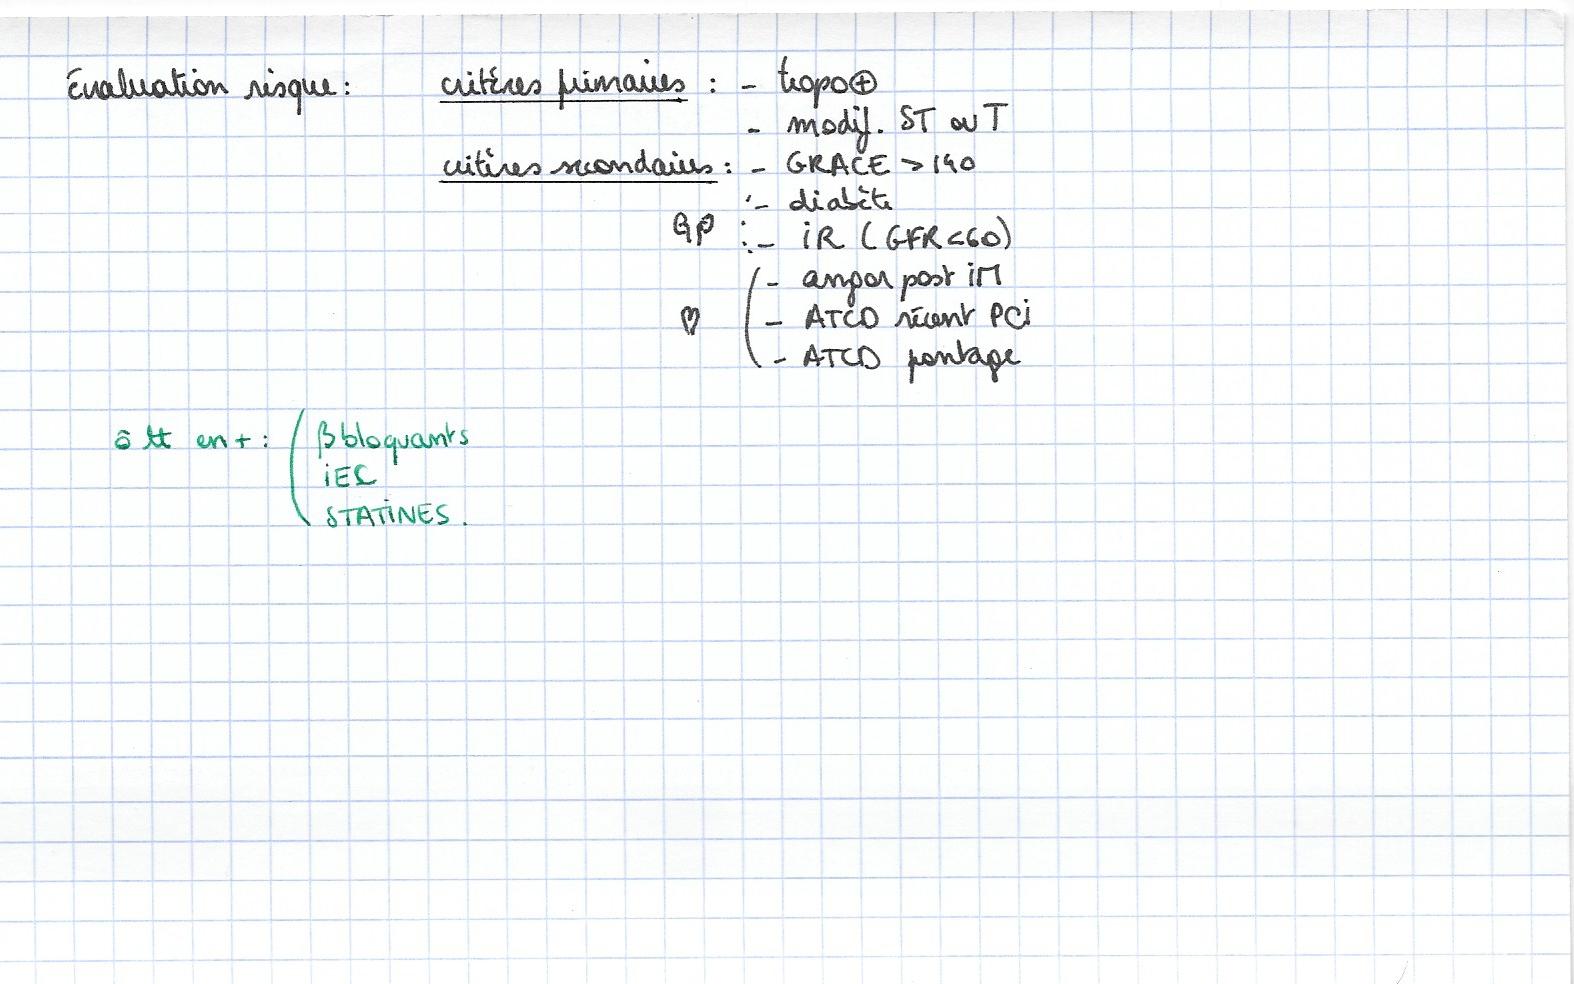 Évaluation risque : critères primaires : - tropo⊕
- modif. ST ou T
critères secondaires : - GRACE > 140
- diabète
- iR (GFR <60)
- angor post iM
♡ - ATCD récent PCi
- ATCD pontage
ô tt en + : βbloquants
iEC
STATiNES.